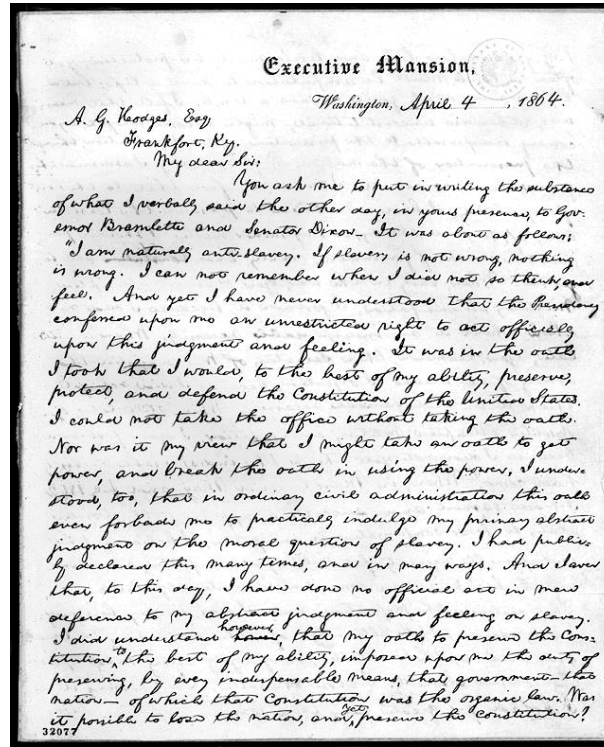 Executive Mansion,
Washington, April 4, 1864.
A. G. Hodges, Esq
Frankfort, Ky.
My dear Sir:
You ask me to put in writing the substance
of what I verbally said the other day, in your presence, to Gov-
ernor Bramlette and Senator Dixon— It was about as follows:
"I am naturally anti-slavery. If slavery is not wrong, nothing
is wrong. I can not remember when I did not so think, and
feel. And yet I have never understood that the Presidency
conferred upon me an unrestricted right to act officially
upon this judgment and feeling. It was in the oath
I took that I would, to the best of my ability, preserve,
protect, and defend the Constitution of the United States.
I could not take the office without taking the oath.
Nor was it my view that I might take an oath to get
power, and break the oath in using the power. I under-
stood, too, that in ordinary civil administration this oath
even forbade me to practically indulge my primary abstract
judgment on the moral question of slavery. I had public-
ly declared this many times, and in many ways. And I aver
that, to this day, I have done no official act in mere
deference to my abstract judgment and feeling on slavery.
I did understand however, that my oath to preserve the Cons-
titution to the best of my ability, imposed upon me the duty of
preserving, by every indispensable means, that government—that
nation— of which that Constitution was the organic law. Was
it possible to lose the nation, and yet preserve the Constitution?
32077